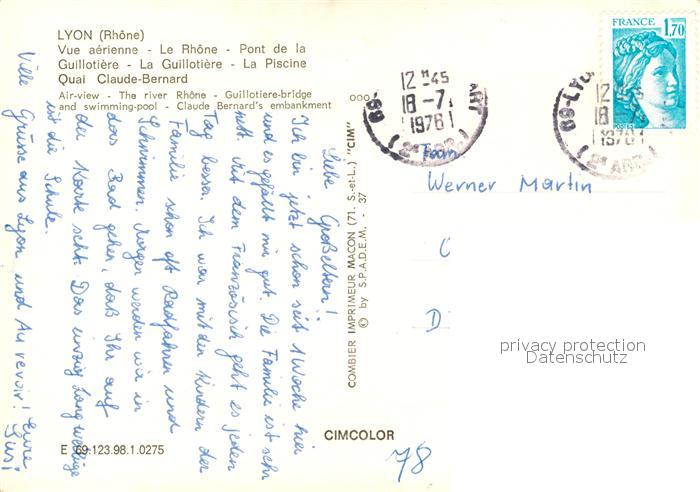 LYON (Rhône)
Vue aérienne - Le Rhône - Pont de la
Guillotière - La Guillotière - La Piscine
Quai Claude-Bernard
Air-view - The river Rhône - Guillotiere-bridge
and swimming-pool - Claude Bernard's embankment
Liebe Großeltern!
Ich bin jetzt schon seit 1 Woche hier
und es gefällt mir gut. Die Familie ist sehr
nett. Mit dem Französisch geht es jeden
Tag besser. Ich war mit den Kindern der
Familie schon oft Radfahren und
Schwimmen. Morgen werden wir in
das Bad gehen, daß Ihr auf
der Karte seht. Das einzig Langweilige
ist die Schule.
Viele Grüsse aus Lyon und Au revoir! Eure
Susi
E 69.123.98.1.0275
COMBIER IMPRIMEUR MACON (71. S.-et-L.) "CIM"
© by S.P.A.D.E.M. - 37
CIMCOLOR
78
FRANCE 1,70
POSTES
12 H45
18-7
1978
69
2e ARR.
12
18
1978
69-LYON
2e ARR.
Fam.
Werner Martin
D
privacy protection
Datenschutz